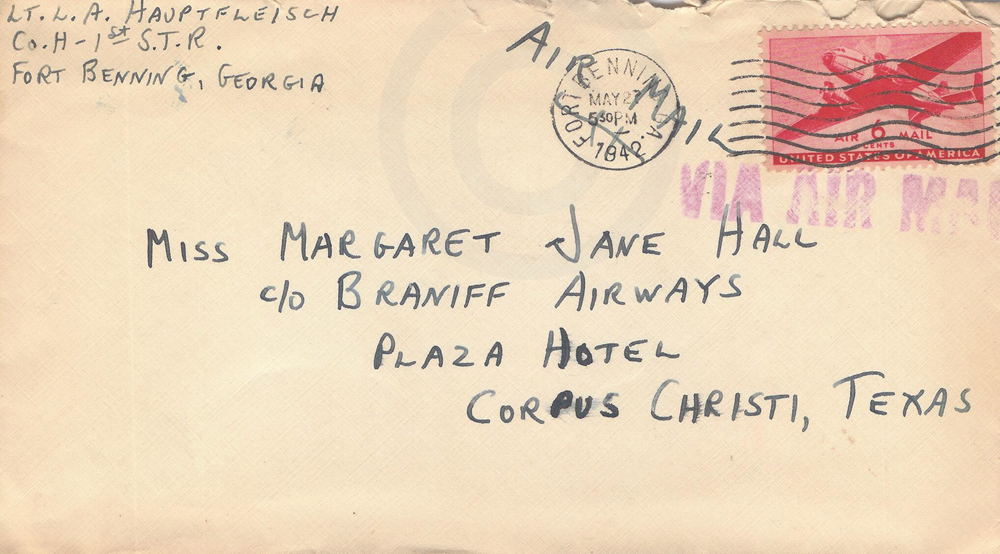 LT. L. A. HAUPTFLEISCH
CO. H - 1st S.T.R.
FORT BENNING, GEORGIA
AIR MAIL
FORT BENNING GA.
MAY 27
530PM
1942
AIR 6 MAIL
CENTS
UNITED STATES OF AMERICA
VIA AIR MAIL
MISS MARGARET JANE HALL
c/o BRANIFF AIRWAYS
PLAZA HOTEL
CORPUS CHRISTI, TEXAS